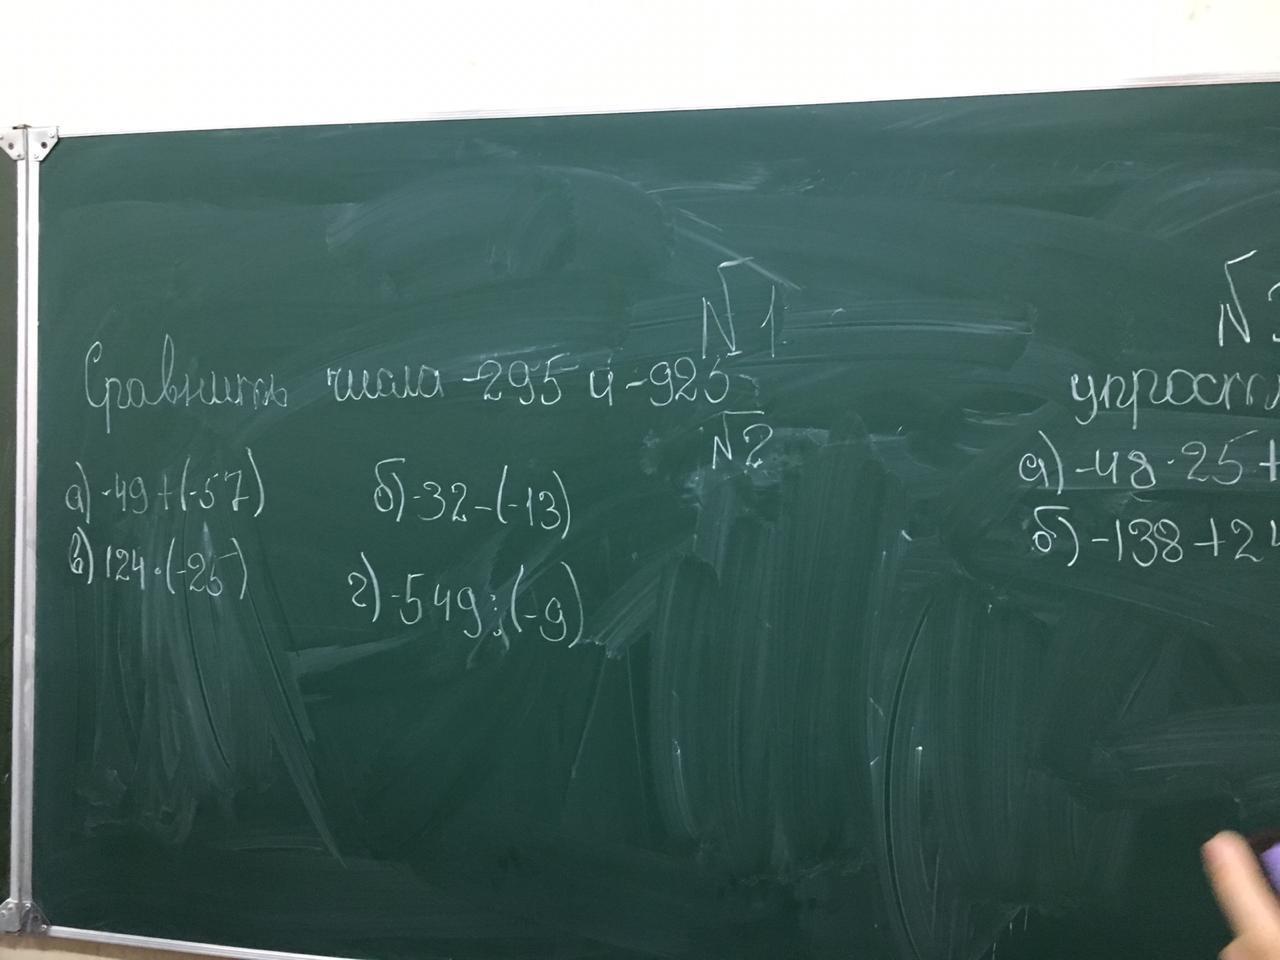 N1
Сравнить числа -295 и -925
N2
а) -49+(-57) б) -32-(-13)
в) 124·(-25) г) -549:(-9)
N3
упрост
а) -48·25+
б) -138+24